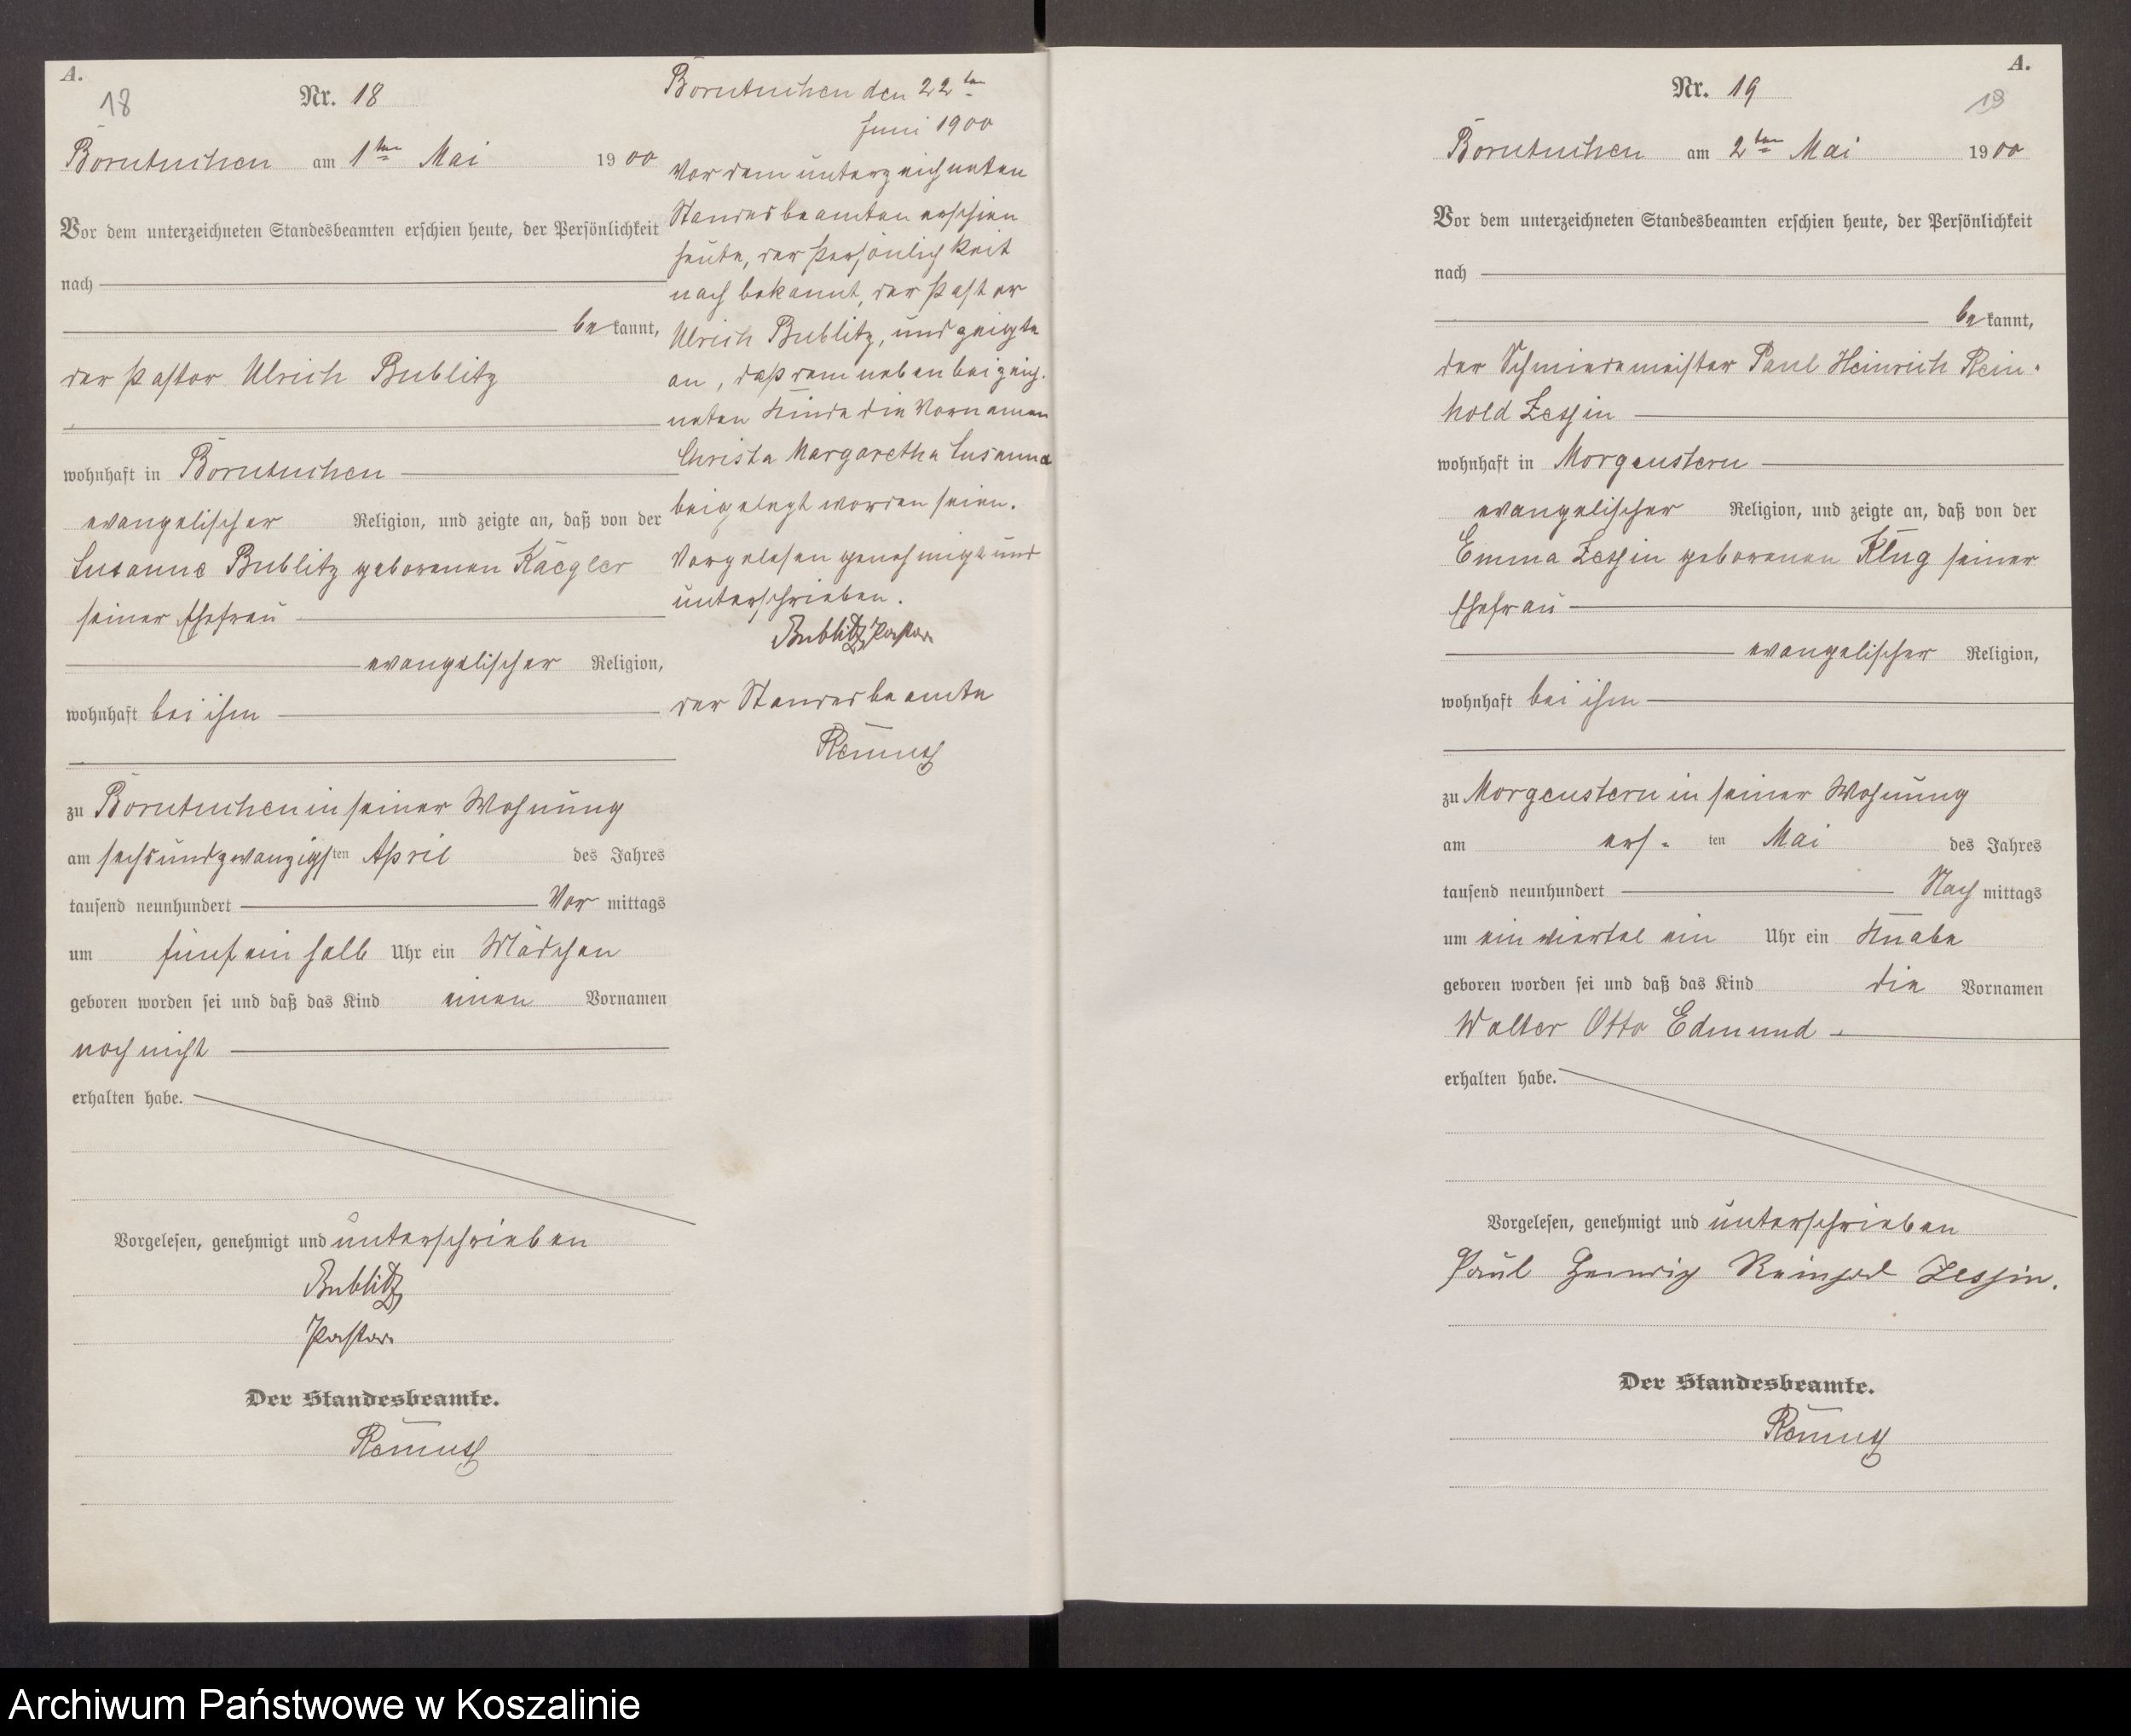 A.
18
Nr. 18
Borntuchen am 1ten Mai 1900
Vor dem unterzeichneten Standesbeamten erschien heute, der Persönlichkeit
nach
bekannt,
der Pastor Ulrich Bublitz
wohnhaft in Borntuchen
evangelischer Religion, und zeigte an, daß von der
Susanne Bublitz geborenen Kaegler
seiner Ehefrau
evangelischer Religion,
wohnhaft bei ihm
zu Borntuchen in seiner Wohnung
am sechsundzwanzigsten April des Jahres
tausend neunhundert Vormittags
um fünf ein halb Uhr ein Mädchen
geboren worden sei und daß das Kind einen Vornamen
noch nicht
erhalten habe.
Vorgelesen, genehmigt und unterschrieben
Bublitz
Pastor
Der Standesbeamte.
Remus
Borntuchen den 22ten
Juni 1900
Vor dem unterzeichneten
Standesbeamten erschien
heute, der Persönlichkeit
nach bekannt, der Pastor
Ulrich Bublitz, und zeigte
an, daß dem nebenbezeich.
neten Kinde die Vornamen
Christa Margaretha Susanna
beigelegt worden seien.
Vorgelesen genehmigt und
unterschrieben.
Bublitz, Pastor
der Standesbeamte
Remus
A.
Nr. 19
19
Borntuchen am 2ten Mai 1900
Vor dem unterzeichneten Standesbeamten erschien heute, der Persönlichkeit
nach
bekannt,
der Schmiedemeister Paul Heinrich Rein-
hold Zessin
wohnhaft in Morgenstern
evangelischer Religion, und zeigte an, daß von der
Emma Zessin geborenen Klug seiner
Ehefrau
evangelischer Religion,
wohnhaft bei ihm
zu Morgenstern in seiner Wohnung
am ers-ten Mai des Jahres
tausend neunhundert Nachmittags
um ein viertel ein Uhr ein Knabe
geboren worden sei und daß das Kind die Vornamen
Walter Otto Edmund
erhalten habe.
Vorgelesen, genehmigt und unterschrieben
Paul Heinrich Reinhold Zessin.
Der Standesbeamte.
Remus
Archiwum Państwowe w Koszalinie